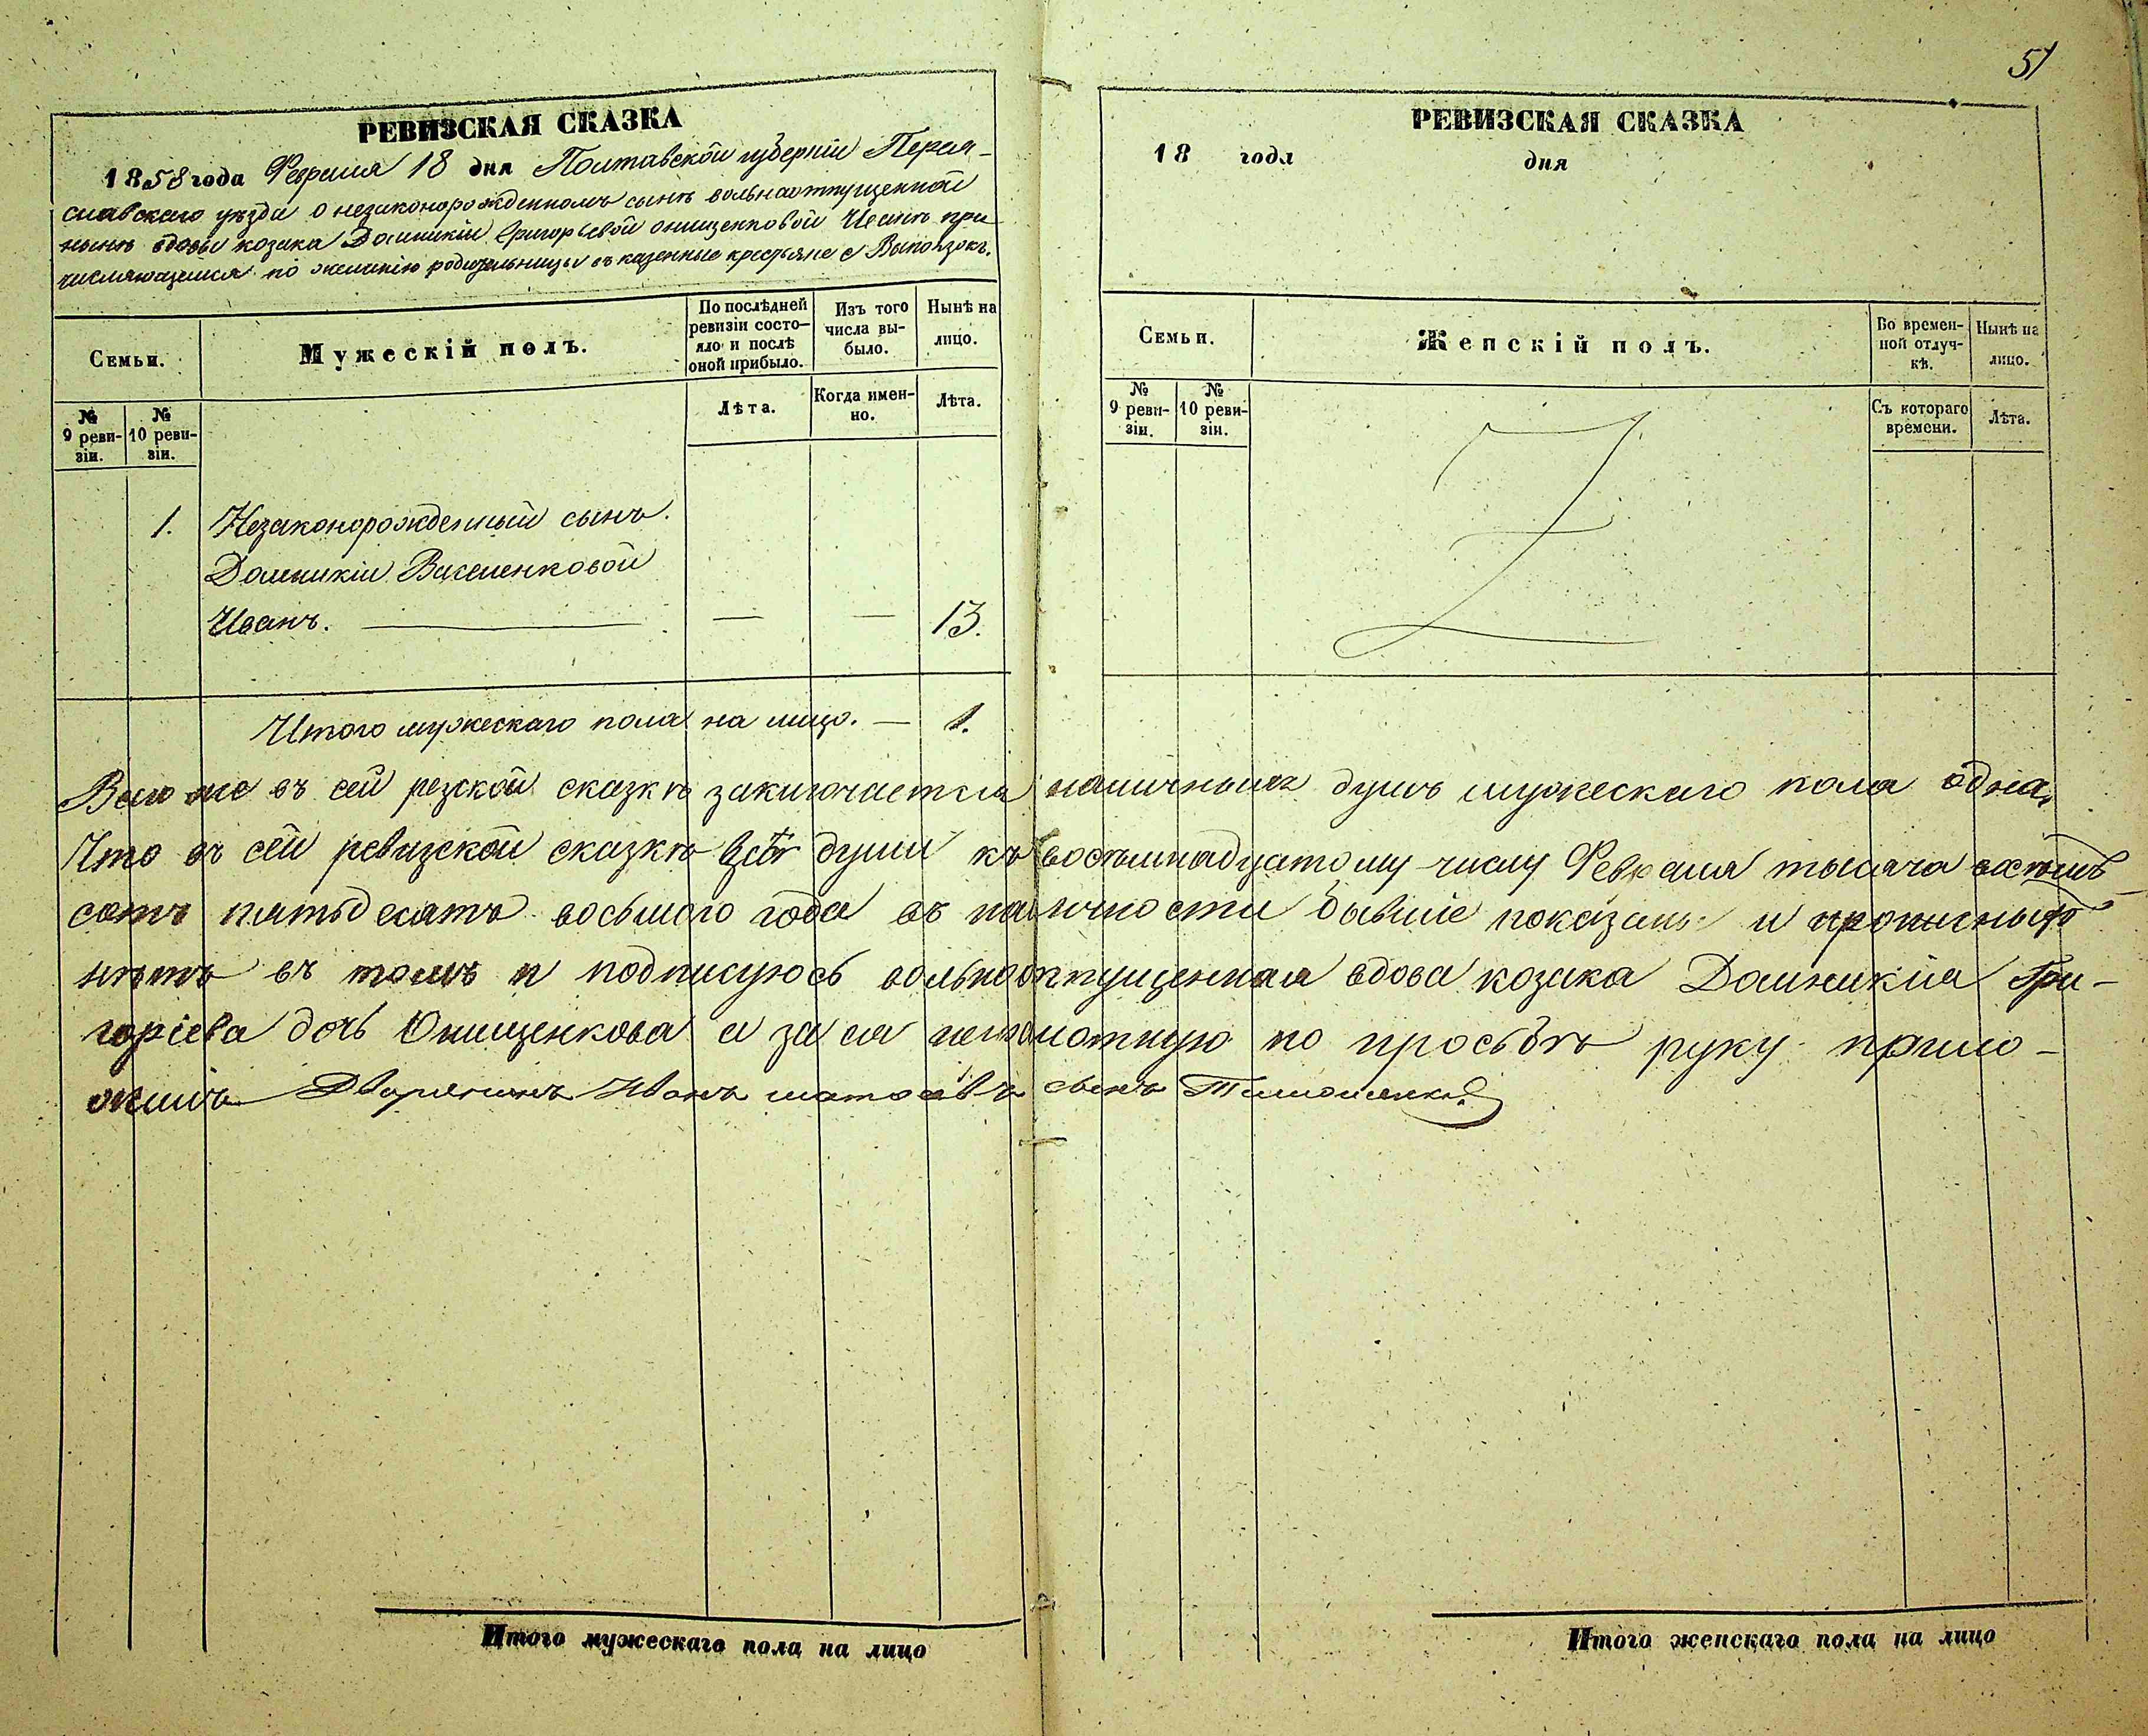 51
РЕВИЗСКАЯ СКАЗКА
1858 года Февраля 18 дня Полтавской губерніи Перея-
славскаго уѣзда о незаконорожденномъ сынѣ вольноотпущенной
нынѣ вдовы козака Домникіи Григорьевой Онищенковой Иванѣ при
числяющемся по желанію родительницы въ казенные крестьяне с Выползокъ.
Семьи.
Мужескій полъ.
По послѣдней ревизіи состо-
яло и послѣ оной прибыло.
Изъ того числа вы-
было.
Нынѣ на лицо.
№ 9 реви-
зіи.
№ 10 реви-
зіи.
Лѣта.
Когда имен-
но.
Лѣта.
1. Незаконорожденный сынъ
Домникіи Василенковой
Иванъ. — — — 13.
Итого мужескаго пола на лицо. — 1.
РЕВИЗСКАЯ СКАЗКА
18 года дня
Семьи.
Женскій полъ.
Во времен-
ной отлуч-
кѣ.
Нынѣ на лицо.
№ 9 реви-
зіи.
№ 10 реви-
зіи.
Съ котораго времени.
Лѣта.
Всего же въ сей резской сказкѣ заключается наличныхъ душъ мужескаго пола одна.
Что въ сей ревизской сказкѣ всѣ души къ восемнадцатому числу Февраля тысяча восемь
сотъ пятьдесятъ восьмого года въ наличности бывшіе показаны и прописныхъ
нѣтъ въ томъ и подписуюсь вольноотпущенная вдова козака Домникія Гри-
горіева дочь Онищенкова а за ея неграмотную по просьбѣ руку прило-
жилъ Дворянинъ Иванъ сынъ
Итого мужескаго пола на лицо
Итого женскаго пола на лицо